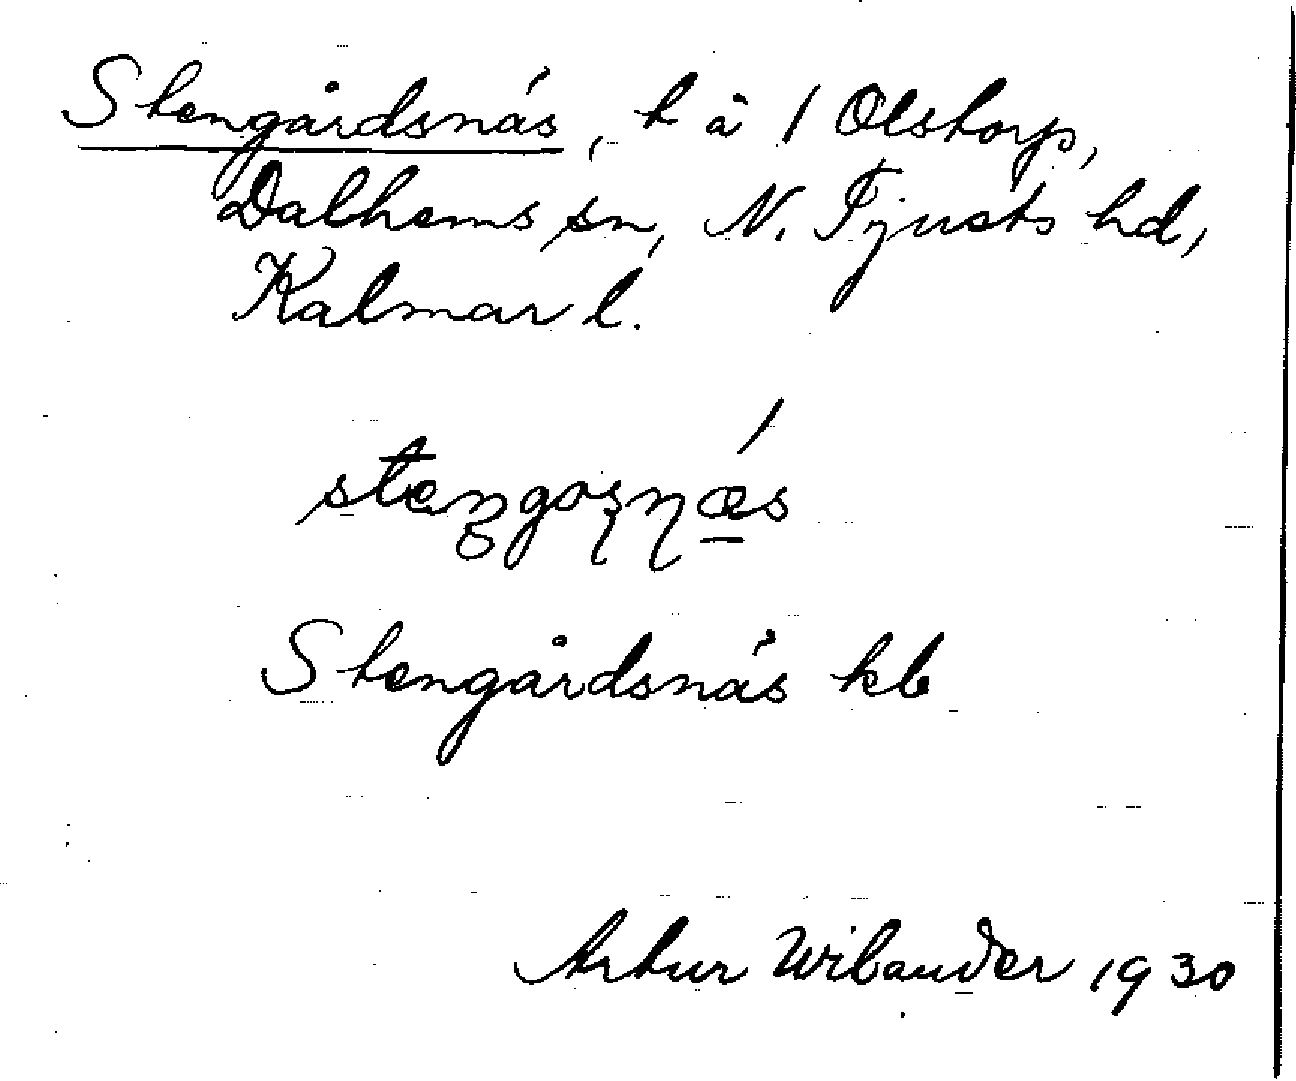 Stengårdsnäs, t å 1 Olstorp,
Dalhems sn, N. Tjusts hd,
Kalmar l.
Stengårdsnäs kb
Artur Wibander 1930